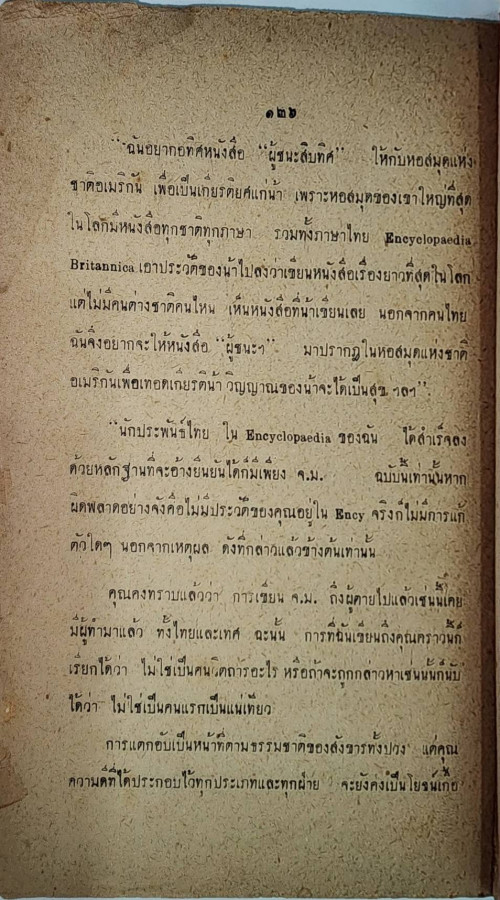 ๑๒๖
"ฉันอยากอทิศหนังสือ "ผู้ชนะสิบทิศ" ให้กับหอสมุดแห่ง
ชาติอเมริกัน เพื่อเป็นเกียรติยศแก่น้า เพราะหอสมุดของเขาใหญ่ที่สุด
ในโลกมีหนังสือทุกชาติทุกภาษา รวมทั้งภาษาไทย Encyclopaedia
Britannica เอาประวัติของน้าไปลงว่าเขียนหนังสือเรื่องยาวที่สุดในโลก
แต่ไม่มีคนต่างชาติคนไหน เห็นหนังสือที่น้าเขียนเลย นอกจากคนไทย
ฉันจึงอยากจะให้หนังสือ "ผู้ชนะฯ" มาปรากฏในหอสมุดแห่งชาติ
อเมริกันเพื่อเทอดเกียรติน้า วิญญาณของน้าจะได้เป็นสุข ฯลฯ".
"นักประพันธ์ไทย ใน Encyclopaedia ของฉัน ได้สำเร็จลง
ด้วยหลักฐานที่จะอ้างยืนยันได้ก็มีเพียง จ.ม. ฉบับนี้เท่านั้นหาก
ผิดพลาดอย่างจังคือไม่มีประวัติของคุณอยู่ใน Ency จริงก็ไม่มีการแก้
ตัวใดๆ นอกจากเหตุผล ดังที่กล่าวแล้วข้างต้นเท่านั้น
คุณคงทราบแล้วว่า การเขียน จ.ม. ถึงผู้ตายไปแล้วเช่นนี้เคย
มีผู้ทำมาแล้ว ทั้งไทยและเทศ ฉะนั้น การที่ฉันเขียนถึงคุณคราวนี้ก็
เรียกได้ว่า ไม่ใช่เป็นคนวิตถารอะไร หรือถ้าจะถูกกล่าวหาเช่นนั้นก็นับ
ได้ว่า ไม่ใช่เป็นคนแรกเป็นแน่เทียว
การแตกดับเป็นหน้าที่ตามธรรมชาติของสังขารทั้งปวง แต่คุณ
ความดีที่ได้ประกอบไว้ทุกประเภทและทุกฝ่าย จะยังคงเป็นโยชน์เกื้อ